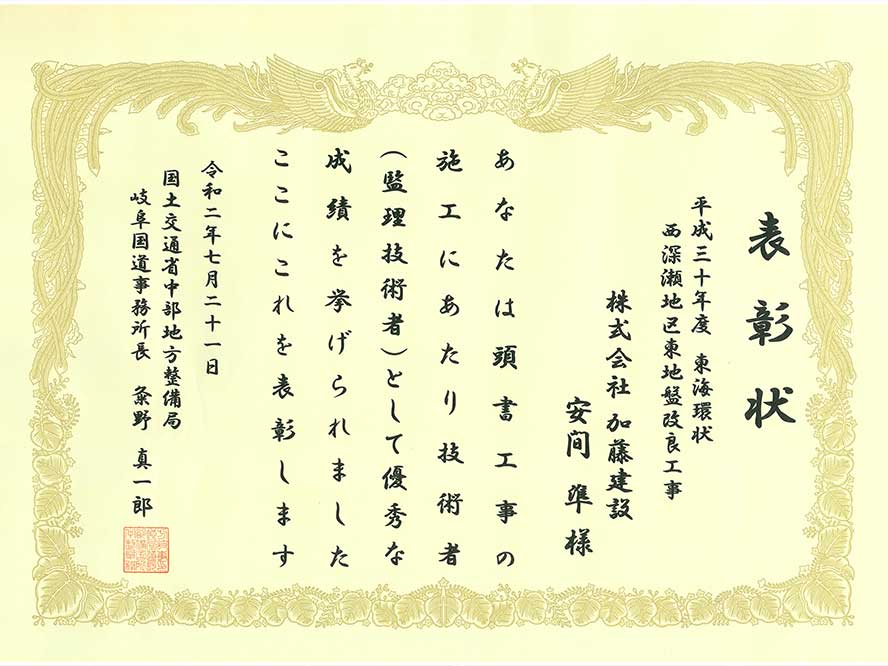 表彰状
平成三十年度 東海環状
西深瀬地区東地盤改良工事
株式会社 加藤建設
安间 準 様
あなたは頭書工事の
施工にあたり技術者
(監理技術者)として優秀な
成績を挙げられました
ここにこれを表彰します
令和二年七月二十一日
国土交通省中部地方整備局
岐阜国道事務所長 粂野 真一郎